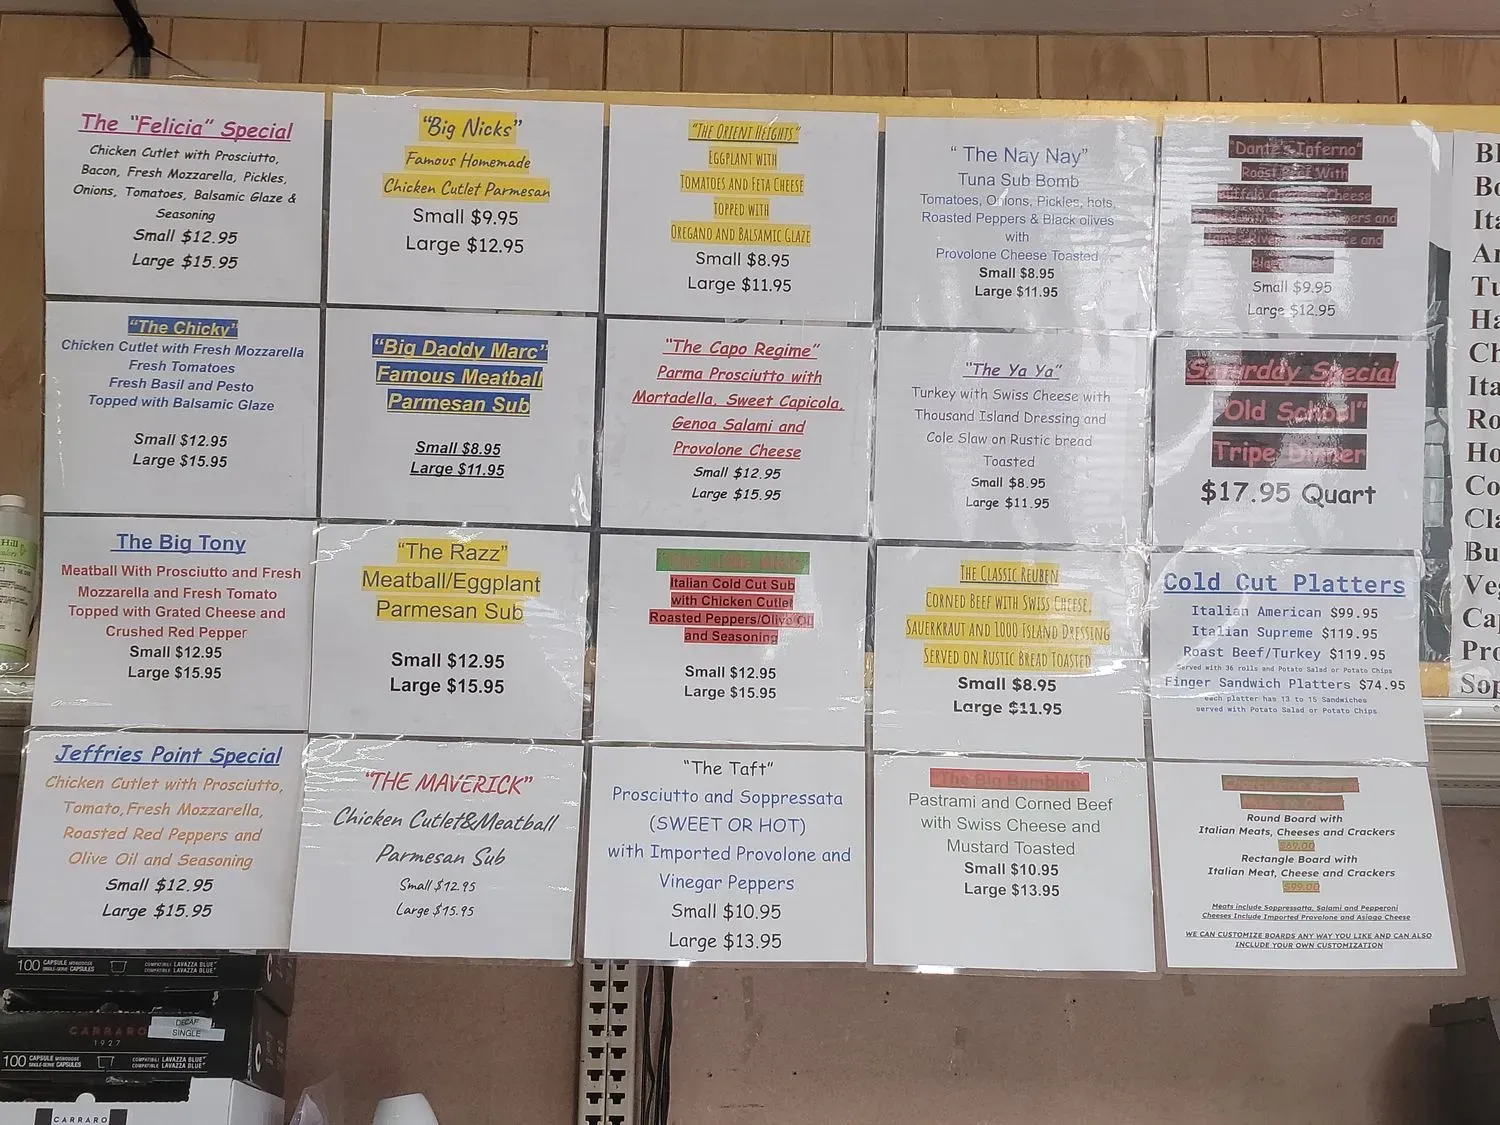 The "Felicia" Special
Chicken Cutlet with Prosciutto,
Bacon, Fresh Mozzarella, Pickles,
Onions, Tomatoes, Balsamic Glaze &
Seasoning
Small $12.95
Large $15.95
"Big Nicks"
Famous Homemade
Chicken Cutlet Parmesan
Small $9.95
Large $12.95
"THE ORIENT HEIGHTS"
EGGPLANT WITH
TOMATOES AND FETA CHEESE
TOPPED WITH
OREGANO AND BALSAMIC GLAZE
Small $8.95
Large $11.95
" The Nay Nay"
Tuna Sub Bomb
Tomatoes, Onions, Pickles, hots,
Roasted Peppers & Black olives
with
Provolone Cheese Toasted
Small $8.95
Large $11.95
"Dante's Inferno"
Roost Beef With
Cheese
and
and
Small $9.95
Large $12.95
"The Chicky"
Chicken Cutlet with Fresh Mozzarella
Fresh Tomatoes
Fresh Basil and Pesto
Topped with Balsamic Glaze
Small $12.95
Large $15.95
"Big Daddy Marc"
Famous Meatball
Parmesan Sub
Small $8.95
Large $11.95
"The Capo Regime"
Parma Prosciutto with
Mortadella, Sweet Capicola,
Genoa Salami and
Provolone Cheese
Small $12.95
Large $15.95
"The Ya Ya"
Turkey with Swiss Cheese with
Thousand Island Dressing and
Cole Slaw on Rustic bread
Toasted
Small $8.95
Large $11.95
Saturday Special
"Old School"
Tripe Dinner
$17.95 Quart
The Big Tony
Meatball With Prosciutto and Fresh
Mozzarella and Fresh Tomato
Topped with Grated Cheese and
Crushed Red Pepper
Small $12.95
Large $15.95
"The Razz"
Meatball/Eggplant
Parmesan Sub
Small $12.95
Large $15.95
Italian Cold Cut Sub
with Chicken Cutlet
Roasted Peppers/Olive Oil
and Seasoning
Small $12.95
Large $15.95
THE CLASSIC REUBEN
CORNED BEEF WITH SWISS CHEESE,
SAUERKRAUT AND 1000 ISLAND DRESSING
SERVED ON RUSTIC BREAD TOASTED
Small $8.95
Large $11.95
Cold Cut Platters
Italian American $99.95
Italian Supreme $119.95
Roast Beef/Turkey $119.95
Served with 36 rolls and Potato Salad or Potato Chips
Finger Sandwich Platters $74.95
each platter has 13 to 15 Sandwiches
served with Potato Salad or Potato Chips
Jeffries Point Special
Chicken Cutlet with Prosciutto,
Tomato,Fresh Mozzarella,
Roasted Red Peppers and
Olive Oil and Seasoning
Small $12.95
Large $15.95
"THE MAVERICK"
Chicken Cutlet&Meatball
Parmesan Sub
Small $12.95
Large $15.95
"The Taft"
Prosciutto and Soppressata
(SWEET OR HOT)
with Imported Provolone and
Vinegar Peppers
Small $10.95
Large $13.95
"The Big Bambino"
Pastrami and Corned Beef
with Swiss Cheese and
Mustard Toasted
Small $10.95
Large $13.95
Round Board with
Italian Meats, Cheeses and Crackers
$69.00
Rectangle Board with
Italian Meat, Cheese and Crackers
$99.00
Meats include Soppressatta, Salami and Pepperoni
Cheeses Include Imported Provolone and Asiago Cheese
WE CAN CUSTOMIZE BOARDS ANY WAY YOU LIKE AND CAN ALSO
INCLUDE YOUR OWN CUSTOMIZATION
100 CAPSULE MONODOSE
SINGLE-SERVE CAPSULES
COMPATIBILI LAVAZZA BLUE
COMPATIBLE LAVAZZA BLUE
CARRARO
1927
DECAF
SINGLE
100 CAPSULE MONODOSE
SINGLE-SERVE CAPSULES
COMPATIBILI LAVAZZA BLUE
COMPATIBLE LAVAZZA BLUE
CARRARO